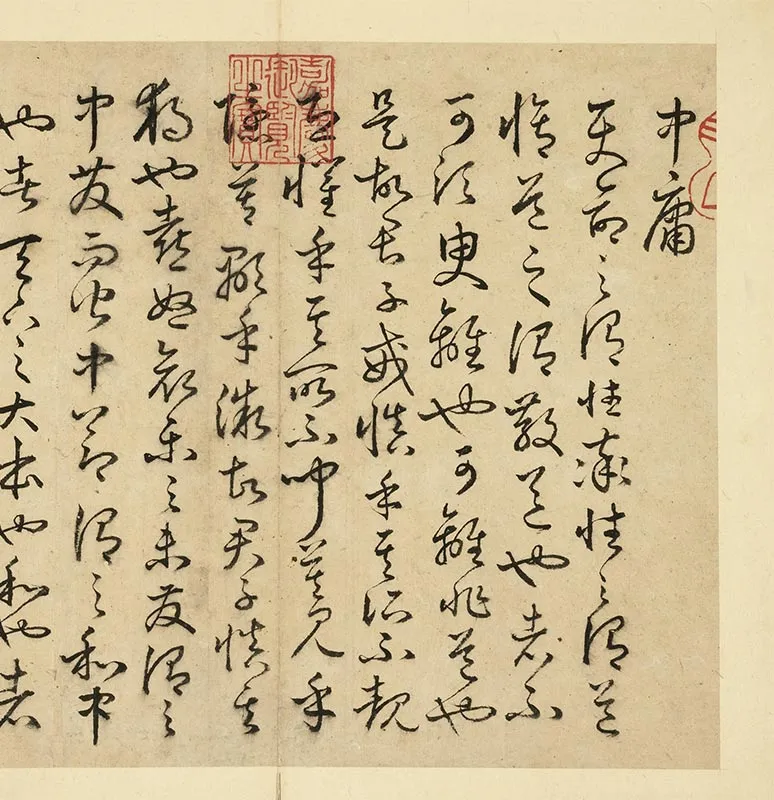 中庸
天命之謂性率性之謂道
脩道之謂教道也者不
可須臾離也可離非道也
是故君子戒慎乎其所不覩
恐懼乎其所不聞莫見乎
隱莫顯乎微故君子慎其
獨也喜怒哀樂之未發謂之
中發而皆中節謂之和中
也者天下之大本也和也者
嘉慶御覽之寶